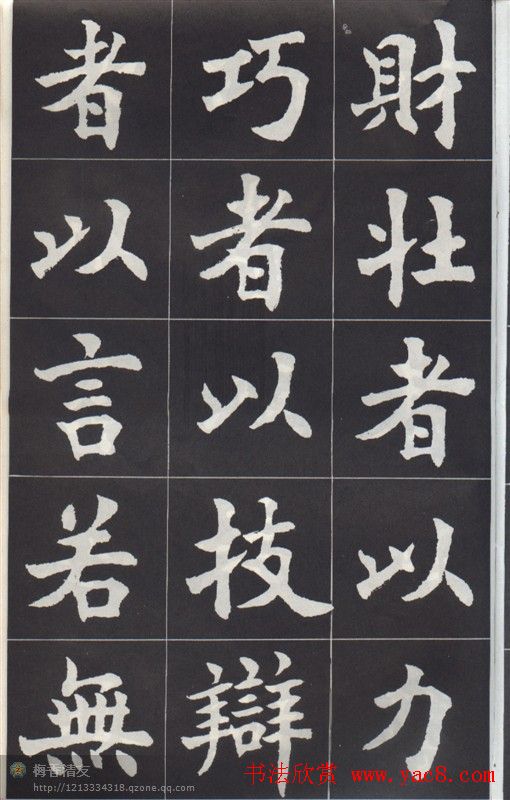 財壮者以力
巧者以技辯
者以言若無
梅香清友
http://1213334318.qzone.qq.com
书法欣赏 www.yac8.com